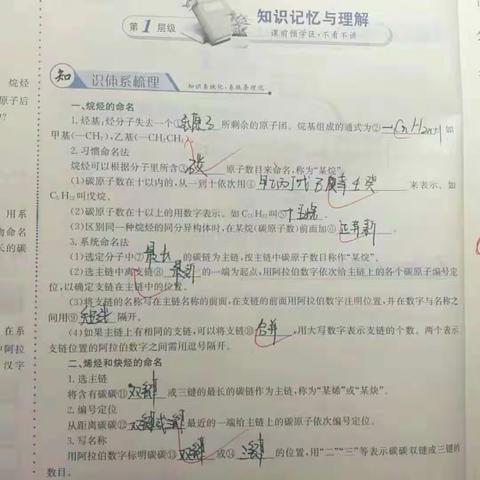 第1层级
知识记忆与理解
课前预学区·不看不讲
知 识体系梳理 知识系统化·系统条理化
一、烷烃的命名
1. 烃基:烃分子失去一个①氢原子所剩余的原子团。烷基组成的通式为②—CnH2n+1 如
甲基(—CH3),乙基(—CH2CH3)
2. 习惯命名法
烷烃可以根据分子里所含③碳原子数目来命名,称为"某烷"。
(1)碳原子数在十以内的,从一到十依次用④甲乙丙丁戊己庚辛壬癸来表示、如
C5H12叫戊烷。
(2)碳原子数在十以上的用数字表示。如 叫⑤
(3)区别同一种烷烃的同分异构体时,在某烷(碳原子数)前面加⑥正异新。
3. 系统命名法
(1)选定分子中⑦最长的碳链为主链,按主链中碳原子数目称作"某烷"。
(2)选主链中离支链⑧最近的一端为起点,用阿拉伯数字依次给主链上的各个碳原子编号定
位,以确定支链在主链中的位置。
(3)将支链的名称写在主链名称的前面,在支链的前面用阿拉伯数字注明位置,并在数字与名称之
间用⑨短线隔开。
(4)如果主链上有相同的支链,可以将支链⑩合并,用大写数字表示支链的个数。两个表示
支链位置的阿拉伯数字之间需用逗号隔开。
二、烯烃和炔烃的命名
1. 选主链
将含有碳碳⑪双键或三键的最长的碳链作为主链,称为"某烯"或"某炔"。
2. 编号定位
从距离碳碳⑫双键或三键最近的一端给主链上的碳原子依次编号定位。
3. 写名称
用阿拉伯数字标明碳碳⑬双键或⑭三键的位置,用"二""三"等表示碳碳双键或三键的
数目。
烷烃
原子后
用系
物命名
长的碳
在系
中阿拉
汉字